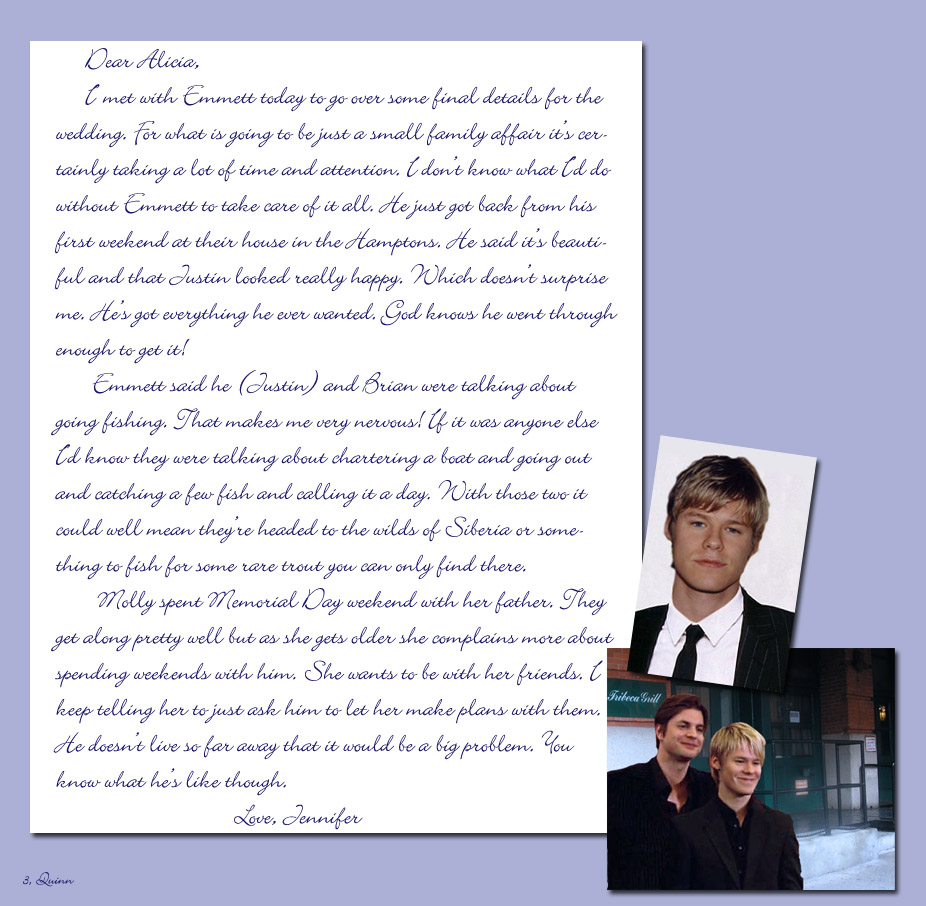 Dear Alicia,
I met with Emmett today to go over some final details for the
wedding. For what is going to be just a small family affair it's cer-
tainly taking a lot of time and attention. I don't know what I'd do
without Emmett to take care of it all. He just got back from his
first weekend at their house in the Hamptons. He said it's beauti-
ful and that Justin looked really happy. Which doesn't surprise
me. He's got everything he ever wanted. God knows he went through
enough to get it!
Emmett said he (Justin) and Brian were talking about
going fishing. That makes me very nervous! If it was anyone else
I'd know they were talking about chartering a boat and going out
and catching a few fish and calling it a day. With those two it
could well mean they're headed to the wilds of Siberia or some-
thing to fish for some rare trout you can only find there.
Molly spent Memorial Day weekend with her father. They
get along pretty well but as she gets older she complains more about
spending weekends with him. She wants to be with her friends. I
keep telling her to just ask him to let her make plans with them.
He doesn't live so far away that it would be a big problem. You
know what he's like though.
Love, Jennifer
Tribeca Grill
3, Quinn